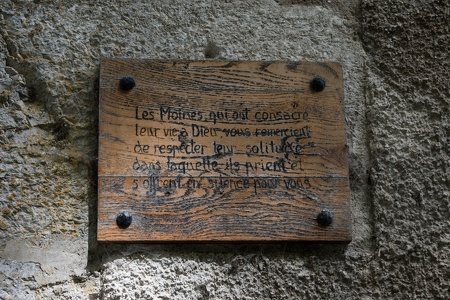 Les Moines, qui ont consacré
leur vie à Dieu vous remercient
de respecter leur solitude
dans laquelle ils prient et
s'offrent en silence pour vous.